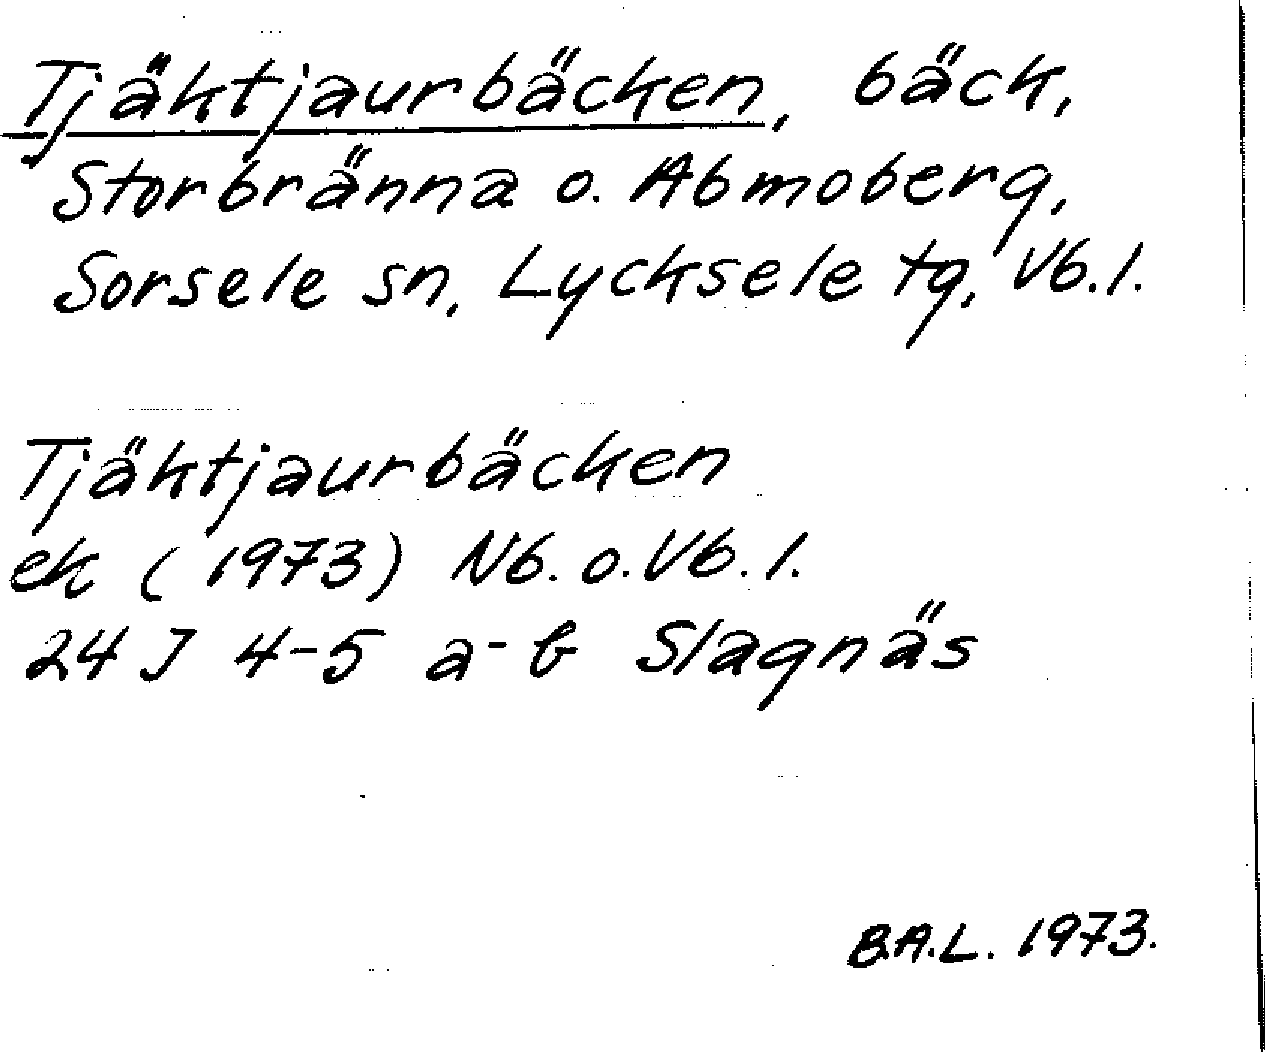 Tjäktjaurbäcken, bäck,
Storbränna o. Abmoberg,
Sorsele sn, Lycksele tg, Vb. l.
Tjäktjaurbäcken
ek (1973) Nb. o. Vb. l.
24 J 4-5 a-b Slagnäs
B.A.L. 1973.